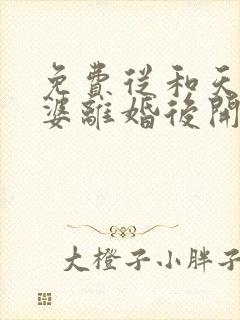 免費從和天
婆離婚後開
大橙子小胖子